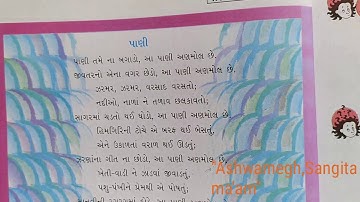 પાણી
પાણી તમે ના બગાડો, આ પાણી અણમોલ છે.
જીવતરનો એના વગર છેડો, આ પાણી અણમોલ છે.
ઝરમર, ઝરમર, વરસાદ વરસતો;
નદીઓ, નાળા ને તળાવ છલકાવતો;
સાગરમાં ચડતો થઈ ઘોડો, આ પાણી અણમોલ છે.
હિમગિરિની ટોચે એ બરફ થઈ બેસતું,
એને ઉકાળતાં વરાળ થઈ ઊડતું;
ઝરણાંના ગીત ના છોડો, આ પાણી અણમોલ છે.
ખેતી-વાડી ને ઝાડવાં જીવાડતું,
પશુ-પંખીને પ્રેમથી એ પોષતું;
આ પાણી અણમોલ છે.
"Ashwamegh,Sangita
ma'am"